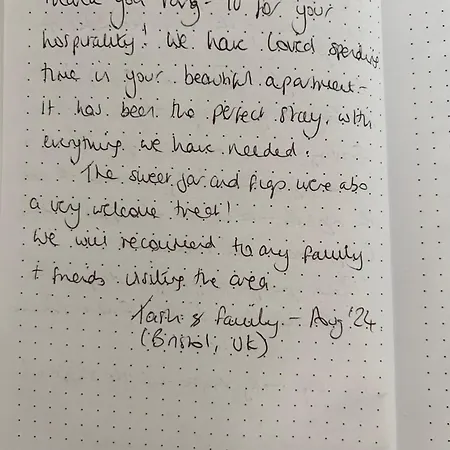 Thank you very - so for your
hospitality! We have loved spending
time in your beautiful apartment -
it has been the perfect stay, with
everything we have needed.
The sweet jar and figs were also
a very welcome treat!
We will recommend to any family
+ friends visiting the area.
Tash & family - Aug '24
(Bristol, UK)